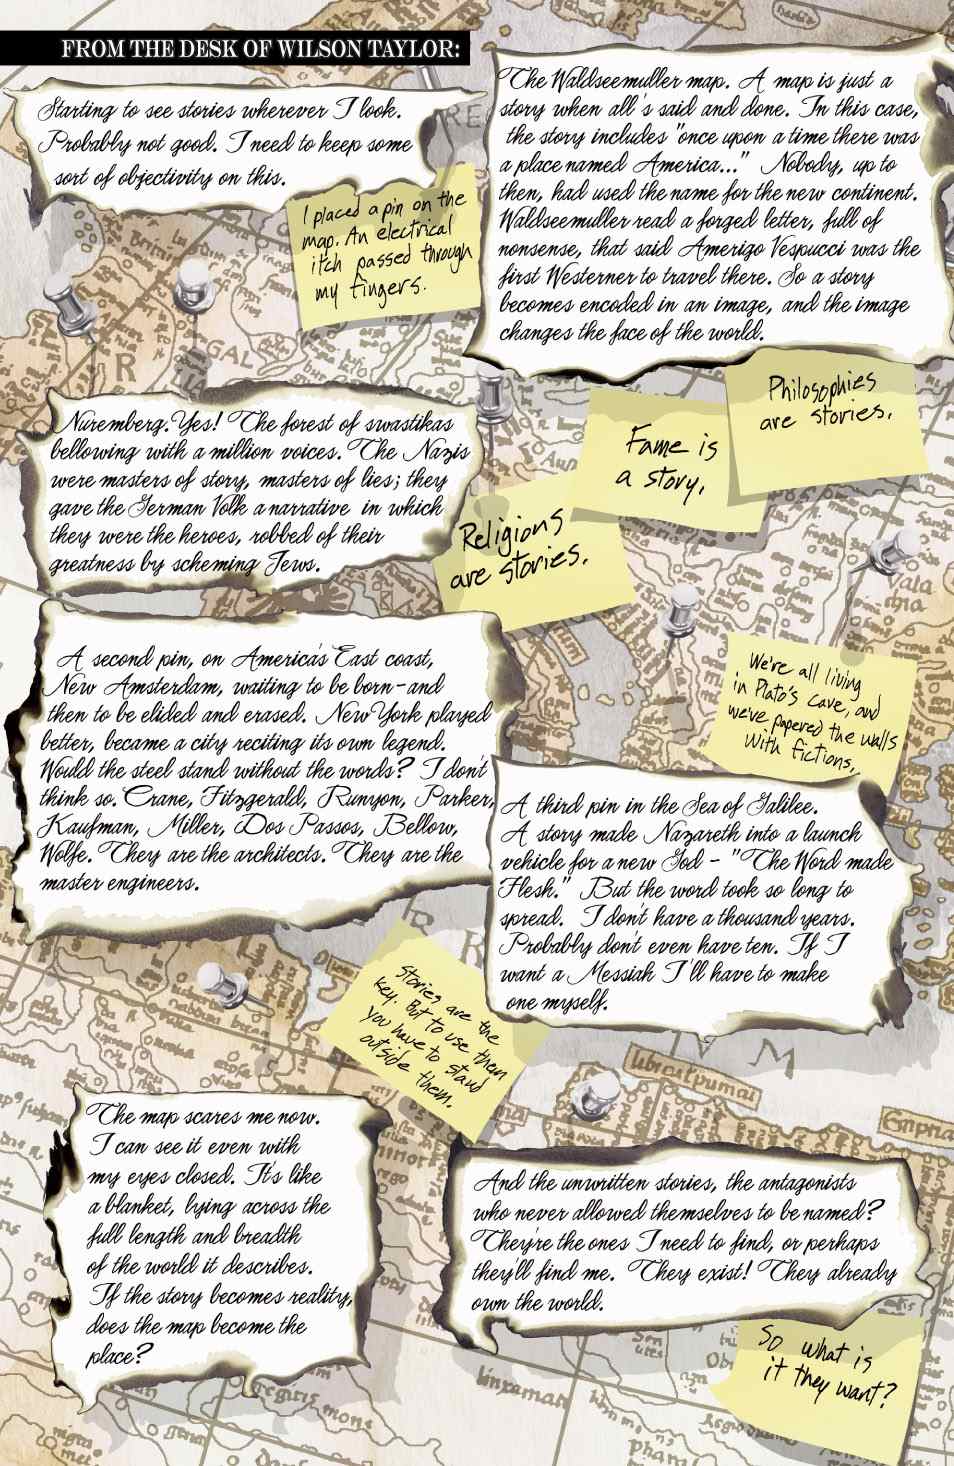 FROM THE DESK OF WILSON TAYLOR:
Starting to see stories wherever I look.
Probably not good. I need to keep some
sort of objectivity on this.
The Waldseemuller map. A map is just a
story when all's said and done. In this case,
the story includes "once upon a time there was
a place named America..." Nobody, up to
then, had used the name for the new continent.
Waldseemuller read a forged letter, full of
nonsense, that said Amerigo Vespucci was the
first Westerner to travel there. So a story
becomes encoded in an image, and the image
changes the face of the world.
I placed a pin on the
map. An electrical
itch passed through
my fingers.
Nuremberg. Yes! The forest of swastikas
bellowing with a million voices. The Nazis
were masters of story, masters of lies; they
gave the German Volk a narrative in which
they were the heroes, robbed of their
greatness by scheming Jews.
Philosophies
are stories.
Fame is
a story.
Religions
are stories.
A second pin, on America's East coast,
New Amsterdam, waiting to be born - and
then to be elided and erased. New York played
better, became a city reciting its own legend.
Would the steel stand without the words? I don't
think so. Crane, Fitzgerald, Runyon, Parker,
Kaufman, Miller, Dos Passos, Bellow,
Wolfe. They are the architects. They are the
master engineers.
We're all living
in Plato's cave, and
we've papered the walls
with fictions.
A third pin in the Sea of Galilee.
A story made Nazareth into a launch
vehicle for a new God - "The Word made
Flesh." But the word took so long to
spread. I don't have a thousand years.
Probably don't even have ten. If I
want a Messiah I'll have to make
one myself.
Stories are the
key. But to use them
you have to stand
outside them.
The map scares me now.
I can see it even with
my eyes closed. It's like
a blanket, lying across the
full length and breadth
of the world it describes.
If the story becomes reality,
does the map become the
place?
And the unwritten stories, the antagonists
who never allowed themselves to be named?
They're the ones I need to find, or perhaps
they'll find me. They exist! They already
own the world.
So what is
it they want?